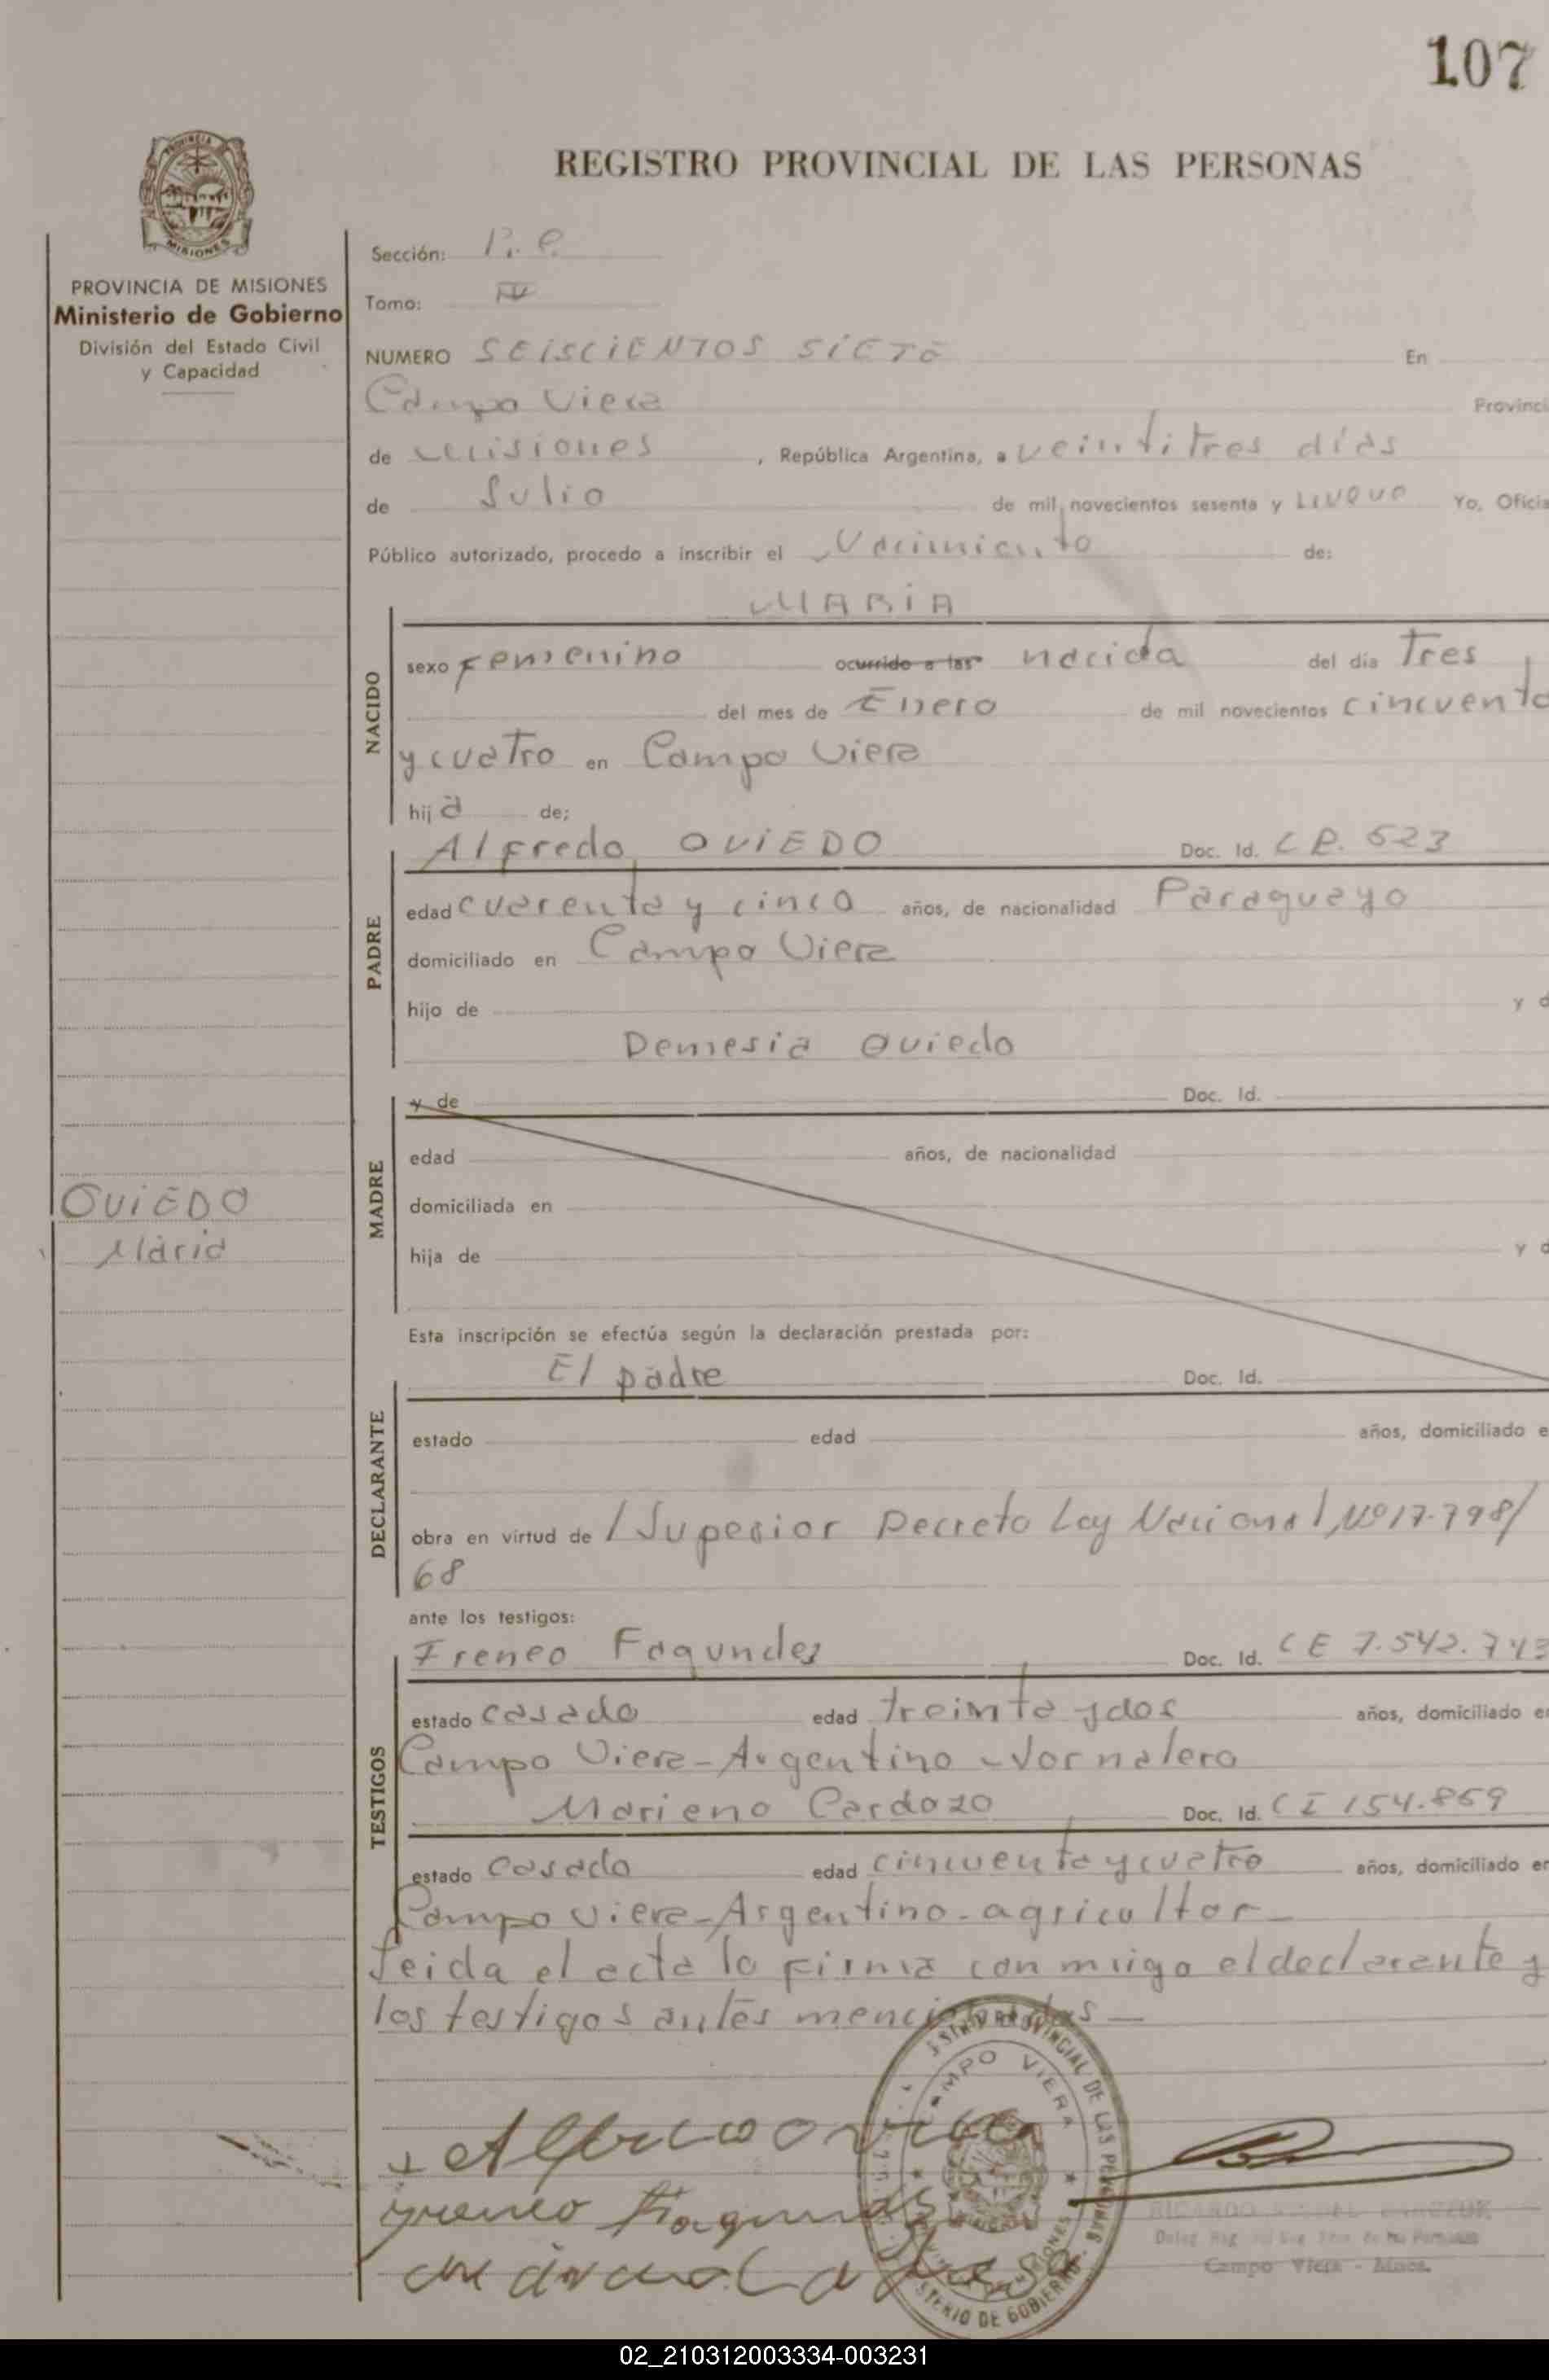 107
REGISTRO PROVINCIAL DE LAS PERSONAS
PROVINCIA DE MISIONES
Ministerio de Gobierno
División del Estado Civil
y Capacidad
Sección: P. e
Tomo: IV
NUMERO SEISCIENTOS SIETE En
Campo Viera Provinci
de Misiones, República Argentina, a veintitres días
de Julio de mil novecientos sesenta y Yo, Oficia
Público autorizado, procedo a inscribir el Nacimiento de:
MARIA
NACIDO
sexo Femenino ocurrido a las nacida del día Tres
del mes de Enero de mil novecientos cincuenta
y cuatro en Campo Viera
hija de;
Alfredo OVIEDO Doc. Id. C P. 523
PADRE
edad cuarenta y cinco años, de nacionalidad Paraguayo
domiciliado en Campo Viera
hijo de y d
Demesia Oviedo
MADRE
y de Doc. Id.
edad años, de nacionalidad
domiciliada en
hija de y d
OVIEDO
Maria
Esta inscripción se efectúa según la declaración prestada por:
El padre Doc. Id.
DECLARANTE
estado edad años, domiciliado e
obra en virtud de / Superior Decreto Ley Nacional Nº 17.798/
68
ante los testigos:
Ireneo Fagundez Doc. Id. CE 7.542.743
TESTIGOS
estado casado edad treinta y dos años, domiciliado en
Campo Viera - Argentino - Jornalero
Mariano Cardozo Doc. Id. CI 154.869
estado Casado edad cincuenta y cuatro años, domiciliado en
Campo Viera - Argentino - agricultor
Leida el acta la firma conmigo el declarante y
los testigos antes mencionados
CAMPO VIERA
Campo Viera - Mnes.
02_210312003334-003231